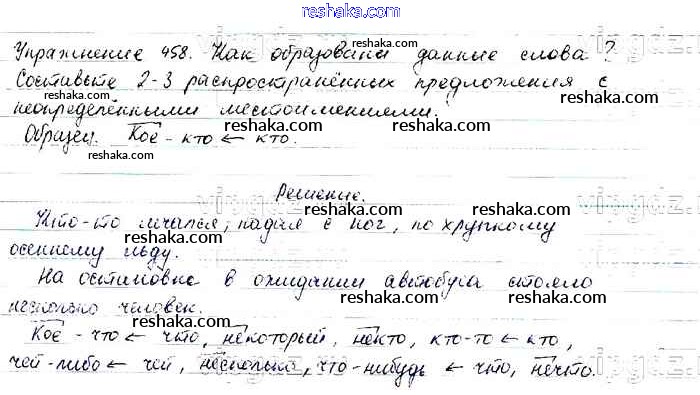 reshaka.com
Упражнение 458. Как образованы данные слова?
reshaka.com
Составьте 2-3 распространённых предложения с
reshaka.com
неопределёнными местоимениями.
Образец. Кое-кто ← кто.
reshaka.com
reshaka.com
Решение.
vipgdz.
Кто-то мчался, падая с ног, по хрупкому
reshaka.com
осеннему льду.
reshaka.com
На остановке в ожидании автобуса стояло
reshaka.com
несколько человек.
reshaka.com
reshaka.com
Кое-что ← что, некоторый, некто, кто-то ← кто,
чей-либо ← чей, несколько, что-нибудь ← что, нечто.
reshaka.com